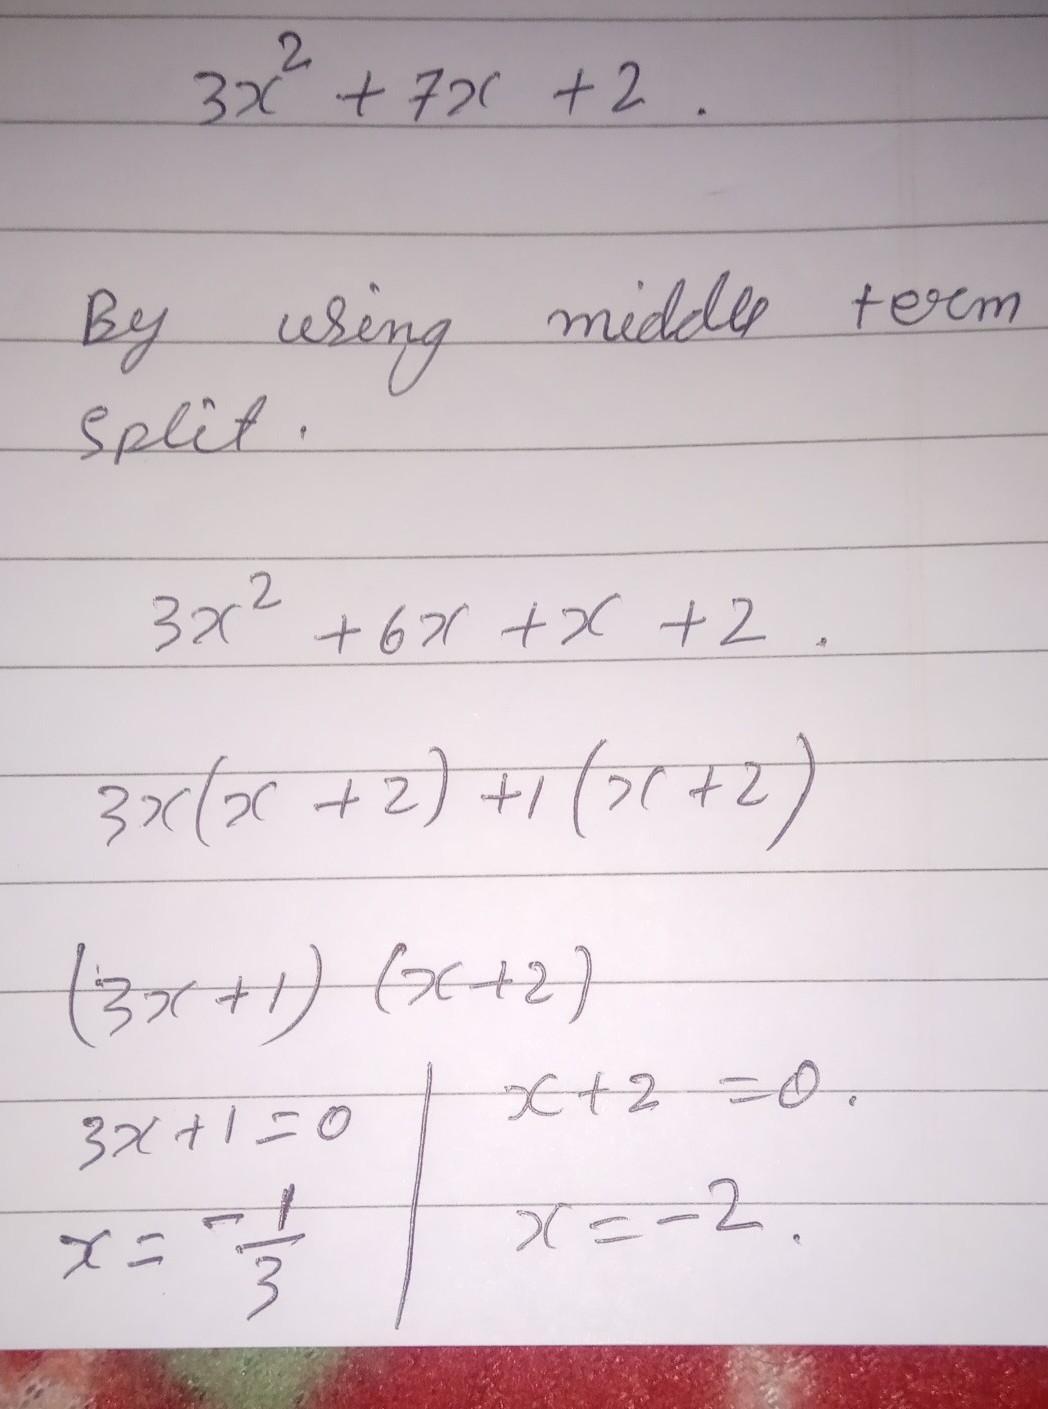 3x² + 7x + 2.
By using middle term
split.
3x² + 6x + x + 2.
3x(x + 2) + 1(x + 2)
(3x + 1) (x + 2)
3x + 1 = 0 | x + 2 = 0.
x = -1/3 | x = -2.